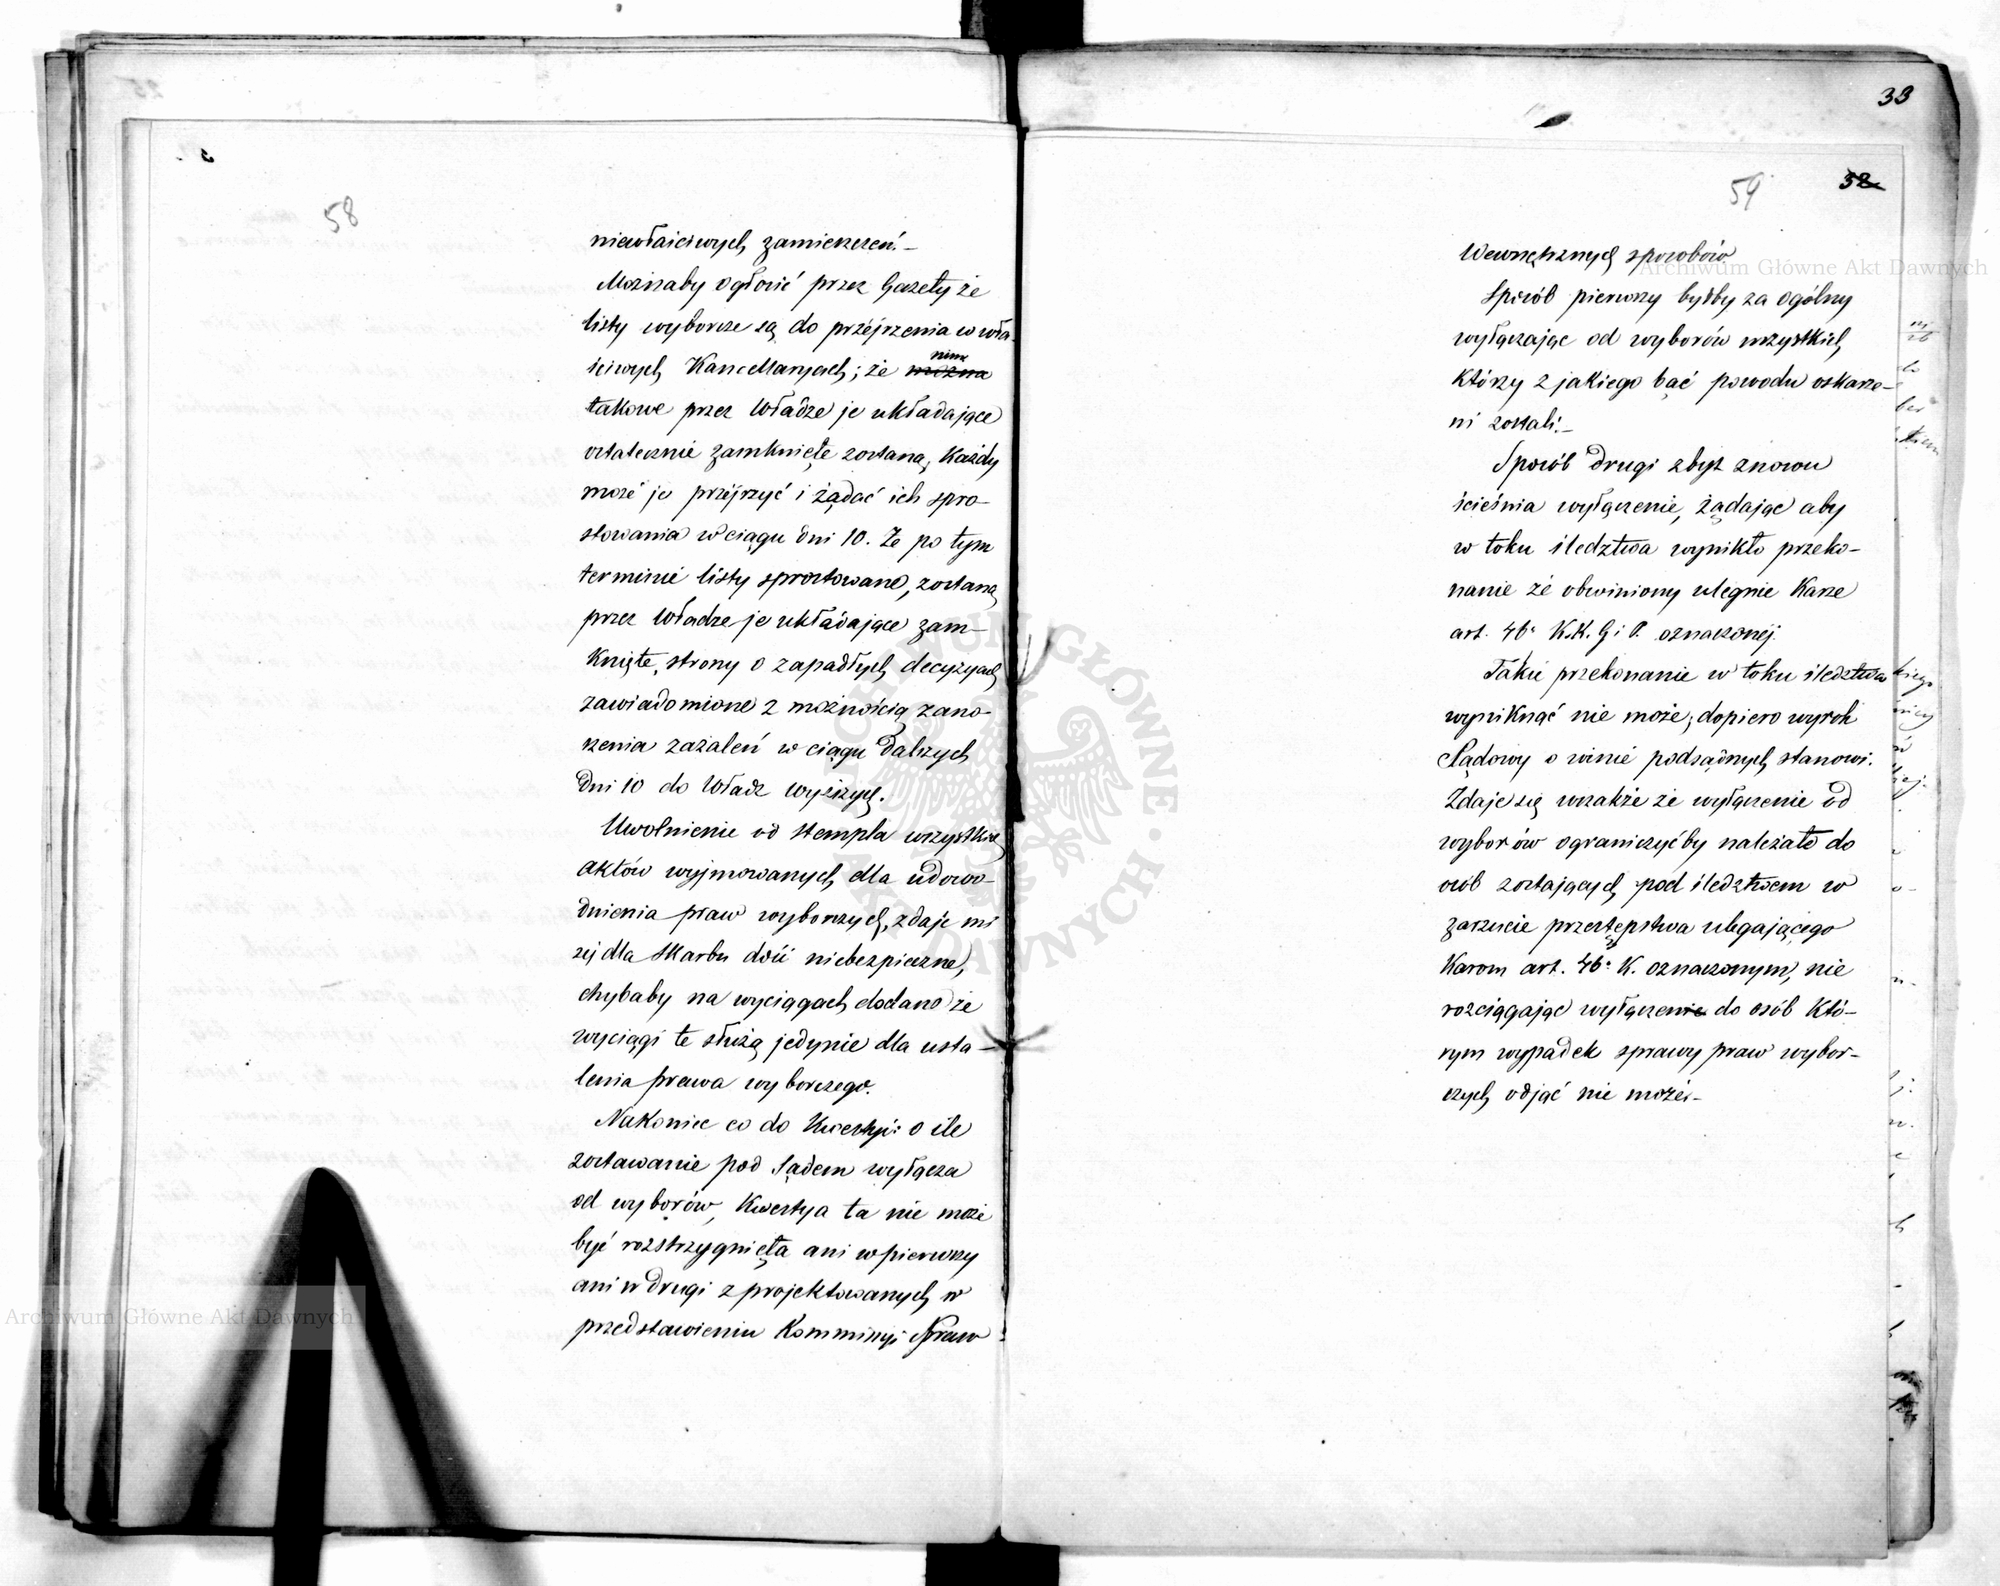 58
niewłaściwych zamierzeń. –
Możnaby ogłosić przez Gazety że
listy wyborcze są do przéjrzenia w wła-
ściwych Kancellaryach; że nim
można
takowe przez Władze je układające
ostatecznie zamknięte zostaną, Każdy
może je przéjrzyć i żądać ich spro-
stowania w ciągu dni 10. Że po tym
terminie listy sprostowane, zostaną
przez Władze je układające zam-
knięte, strony o zapadłych decyzyach
zawiadomione z możnością zano-
szenia zażaleń w ciągu dalszych
dni 10 do Władz wyższych.
Uwolnienie od stempla wszystkich
aktów wyjmowanych dla udowo-
dnienia praw wyborczych, zdaje mi
się dla Skarbu dość niebezpieczne,
chybaby na wyciągach dodano że
wyciągi te służą jedynie dla usta-
lenia prawa wyborczego.
Nakoniec co do Kwestyi: o ile
zostawanie pod Sądem wyłącza
od wyborów, Kwestya ta nie może
być rozstrzygnięta ani w pierwszy
ani w drugi z projektowanych w
przedstawieniu Kommissyi Spraw
33
32
59
Wewnętrznych sposobów
Sposób pierwszy byłby za ogólny
wyłączając od wyborów wszystkich
którzy z jakiego bąć powodu oskarże-
ni zostali. –
Sposób drugi zbyt znowu
ścieśnia wyłączenie, żądając aby
w toku śledztwa wynikło przeko-
nanie że obwiniony ulegnie Karze
art. 46. K.K.G i P. oznaczonéj.
Takie przekonanie w toku śledztwa
wyniknąć nie może; dopiero wyrok
Sądowy o winie podsądnych stanowi.
Zdaje się wszakże że wyłączenie od
wyborów ograniczyćby należało do
osób zostających pod śledztwem w
zarzucie przestępstwa ulegającego
Karom art. 46. K. oznaczonym, nie
rozciągając wyłączenie do osób Któ-
rym wypadek sprawy praw wybor-
czych odjąć nie może. –
Archiwum Główne Akt Dawnych
Archiwum Główne Akt Dawnych